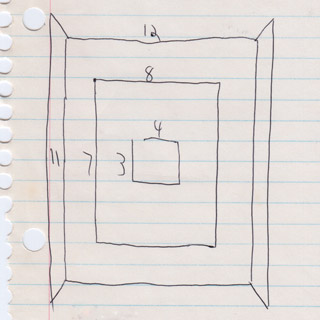 12
8
4
11 7 3